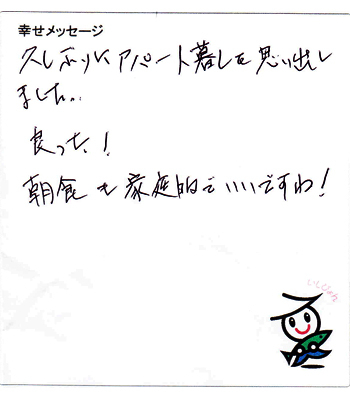 幸せメッセージ
久しぶりにアパート暮しを思い出し
ました。
良った!
朝食も家庭的でいいですね!